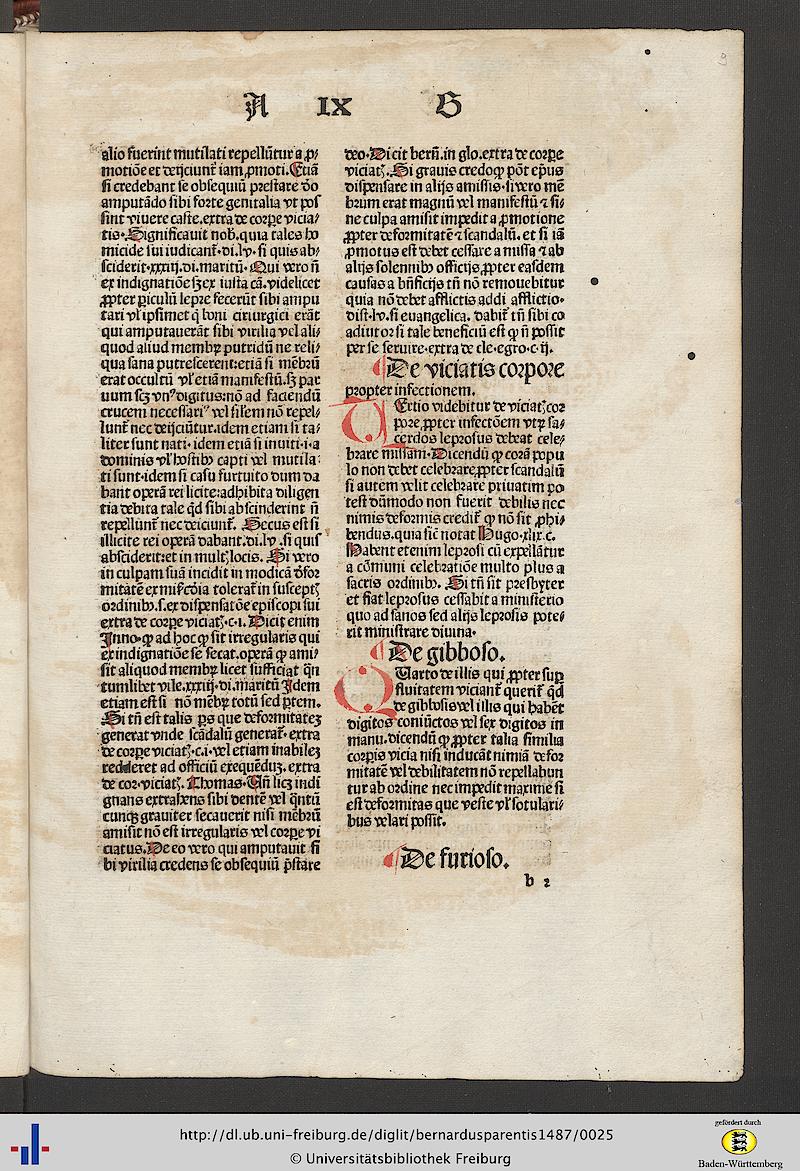 A IX B
9
alio fuerint mutilati repellũtur a ꝓ⸗
motiõe et deijciunt᷑ iam ꝓmoti. Etiã
si credebant se obsequiũ prestare deo
amputãdo sibi forte genitalia vt pos
sint viuere caste. extra de corpe vicia⸗
tis. Significauit nob̃. quia tales ho
micide sui iudicant᷑. di. lv. si quis ab⸗
sciderit. xxxiij. di. maritũ. Qui vero ñ
ex indignatiõe sꝫ ex iusta cã. videlicet
ꝓpter ꝑiculũ lepre fecerũt sibi ampu
tari vł ipsimet ꝙ boni cirurgici erãt
qui amputauerãt sibi virilia vel ali⸗
quod aliud membꝝ putridũ ne reli⸗
qua sana putrescerent: etiã si mẽbrũ
erat occultũ vł etiã manifestũ. sꝫ par
uum scꝫ vnꝰ digitus: nõ ad faciendũ
crucem necessariꝰ vel silem nõ repel⸗
lunt᷑ nec deijciũtur. idem etiam si ta⸗
liter sunt nati. idem etiã si inuiti. i. a
dominis vł hostibꝫ capti vel mutila⸗
ti sunt. idem si casu furtuito dum da
bant operã rei licite: adhibita diligen
tia debita tale qd̃ sibi absciderint ñ
repellunt᷑ nec deiciunt᷑. Secus est si
illicite rei operã dabant. di. lv. si quis
absciderit: et in multꝭ locis. Si vero
in culpam suã incidit in modicã defor
mitatẽ ex mi̅cõia tolerat᷑ in susceptꝭ
ordinibꝫ. s. ex dispensatõe episcopi sui
extra de corꝑe viciatꝭ. c. i. Dicit enim
Inno. ꝙ ad hoc ꝙ sit irregularis qui
ex indignatiõe se secat. operã ꝙ ami⸗
sit aliquod membꝝ licet sufficiat qñ
tumlibet vile. xxxiij. di. maritũ Idem
etiam est si nõ mẽbꝝ totũ sed ꝑtem.
Si tñ est talis ꝑs que deformitateꝫ
generat vnde scãdalũ generat᷑. extra
de corꝑe viciatꝭ. c. i. vel etiam inabileꝫ
redderet ad officiũ exequẽduꝫ. extra
de cor. viciatꝭ. Thomas. Vñ licꝫ indi
gnans extrahens sibi dentẽ vel qñtũ
cunqꝫ grauiter secauerit nisi mẽbrũ
amisit nõ est irregularis vel corꝑe vi
ciatus. De eo vero qui amputauit si
bi virilia credens se obsequiũ p̃stare
deo. Dicit berñ. in glo. extra de corꝑe
viciatꝭ. Si grauis credoqꝫ põt ep̃us
dispensare in alijs amissis. si vero mẽ
brum erat magnũ vel manifestũ ⁊ si⸗
ne culpa amisit impedit a ꝓmotione
ꝓpter deformitatẽ ⁊ scandalũ. et si iã
ꝓmotus est debet cessare a missa ⁊ ab
alijs solennibꝫ officijs ꝓpter easdem
causas a bñficijs tñ nõ remouebitur
quia nõ debet afflictis addi afflictio.
dist. lv. si euangelica. dabit᷑ tñ sibi co
adiutor si tale beneficiũ est ꝙ ñ possit
per se seruire. extra de cle. egro. c. ij.
¶ De viciatis corpore
propter infectionem.
TErtio videbitur de viciatꝭ cor
pore ꝓpter infectõem vtꝝ sa⸗
cerdos leprosus debeat cele⸗
brare missam. Dicendũ ꝙ corã popu
lo non debet celebrare ꝓpter scandalũ
si autem velit celebrare priuatim po
test dũmodo non fuerit debilis nec
nimis deformis credit᷑ ꝙ nõ sit ꝓhi⸗
bendus. quia sic̃ notat Hugo. xlix. c.
Habent etenim leprosi cũ expellãtur
a cõmuni celebratiõe multo plus a
sacris ordinibꝫ. Si tñ sit presbyter
et fiat leprosus cessabit a ministerio
quo ad sanos sed alijs leprosis pote⸗
rit ministrare diuina.
¶ De gibboso.
QUarto de illis qui ꝓpter suꝑ
fluitatem viciant᷑ querit᷑ qd̃
de gibbosis vel illis qui habẽt
digitos coniũctos vel sex digitos in
manu. dicendũ ꝙ ꝓpter talia similia
corꝑis vicia nisi inducãt nimiã defor
mitatẽ vel debilitatem nõ repellabun
tur ab ordine nec impedit maxime si
est deformitas que veste vł sotulari⸗
bus velari possit.
¶ De furioso.
b 2
http://dl.ub.uni-freiburg.de/diglit/bernardusparentis1487/0025
© Universitätsbibliothek Freiburg
gefördert durch
Baden-Württemberg